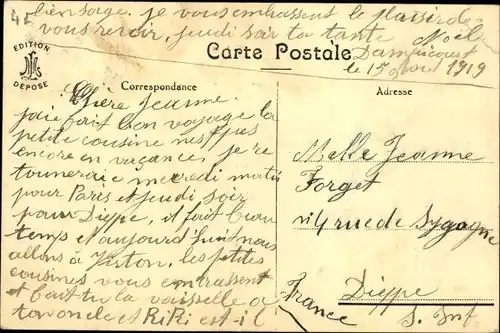 bien sage. je vous embrassent le plaisir de
vous revoir, jeudi soir ta tante Noël
Carte Postale
Dampicourt
le 15 Août 1919
EDITION
DÉPOSÉ
Correspondance
Chère Jeanne.
j'aie fait bon voyage la
petite cousine n'est pas
encore en vacances, je re
tourneraie mecredi matin
pour Paris et jeudi soir
pour Dieppe, il fait beau
temps et aujourd'huit nous
allons à Virton, les petites
cousines vous embrassent
et fait tu la vaisselle a
ton oncle et RiRi est-il
Adresse
Melle Jeanne
Forget
rue de Sygogne
Dieppe
S. Inf
France